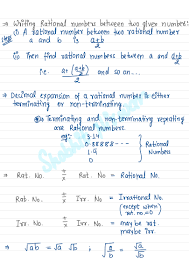 → Writing Rational numbers between two given numbers
(i) A rational number between two rational number
a and b is a+b/2
(ii) Then find rational numbers between a and a+b/2
i.e. a+(a+b/2)/2 and so on...
→ Decimal expansion of a rational number is either
terminating or non-terminating.
Terminating and non-terminating repeating
are Rational numbers.
eg: 3.14
0.88888---
0
Rational
Numbers
→ Rat. No. ± × ÷ Rat. No = Rational No.
Rat. No. ± × ÷ Irr. No = Irrational No
(except when
rat. no=0)
Irr. No. ± × ÷ Irr. No = may be rat.
may be irr.
→ √ab = √a √b ; √a/b = √a/√b